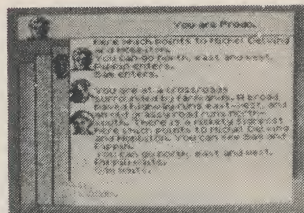 You are Frodo.
here which points to Michel Delving
and Hobbiton.
You can go north, east and west.
Pippin enters.
Sam enters.
You are at a crossroads
surrounded by farmland. A broad
highway runs east-west, and
an old grassy road runs north-
south. There is a rickety signpost
here which points to Michel Delving
and Hobbiton. You can see Sam and
Pippin.
You can go north, east and west.
waits.